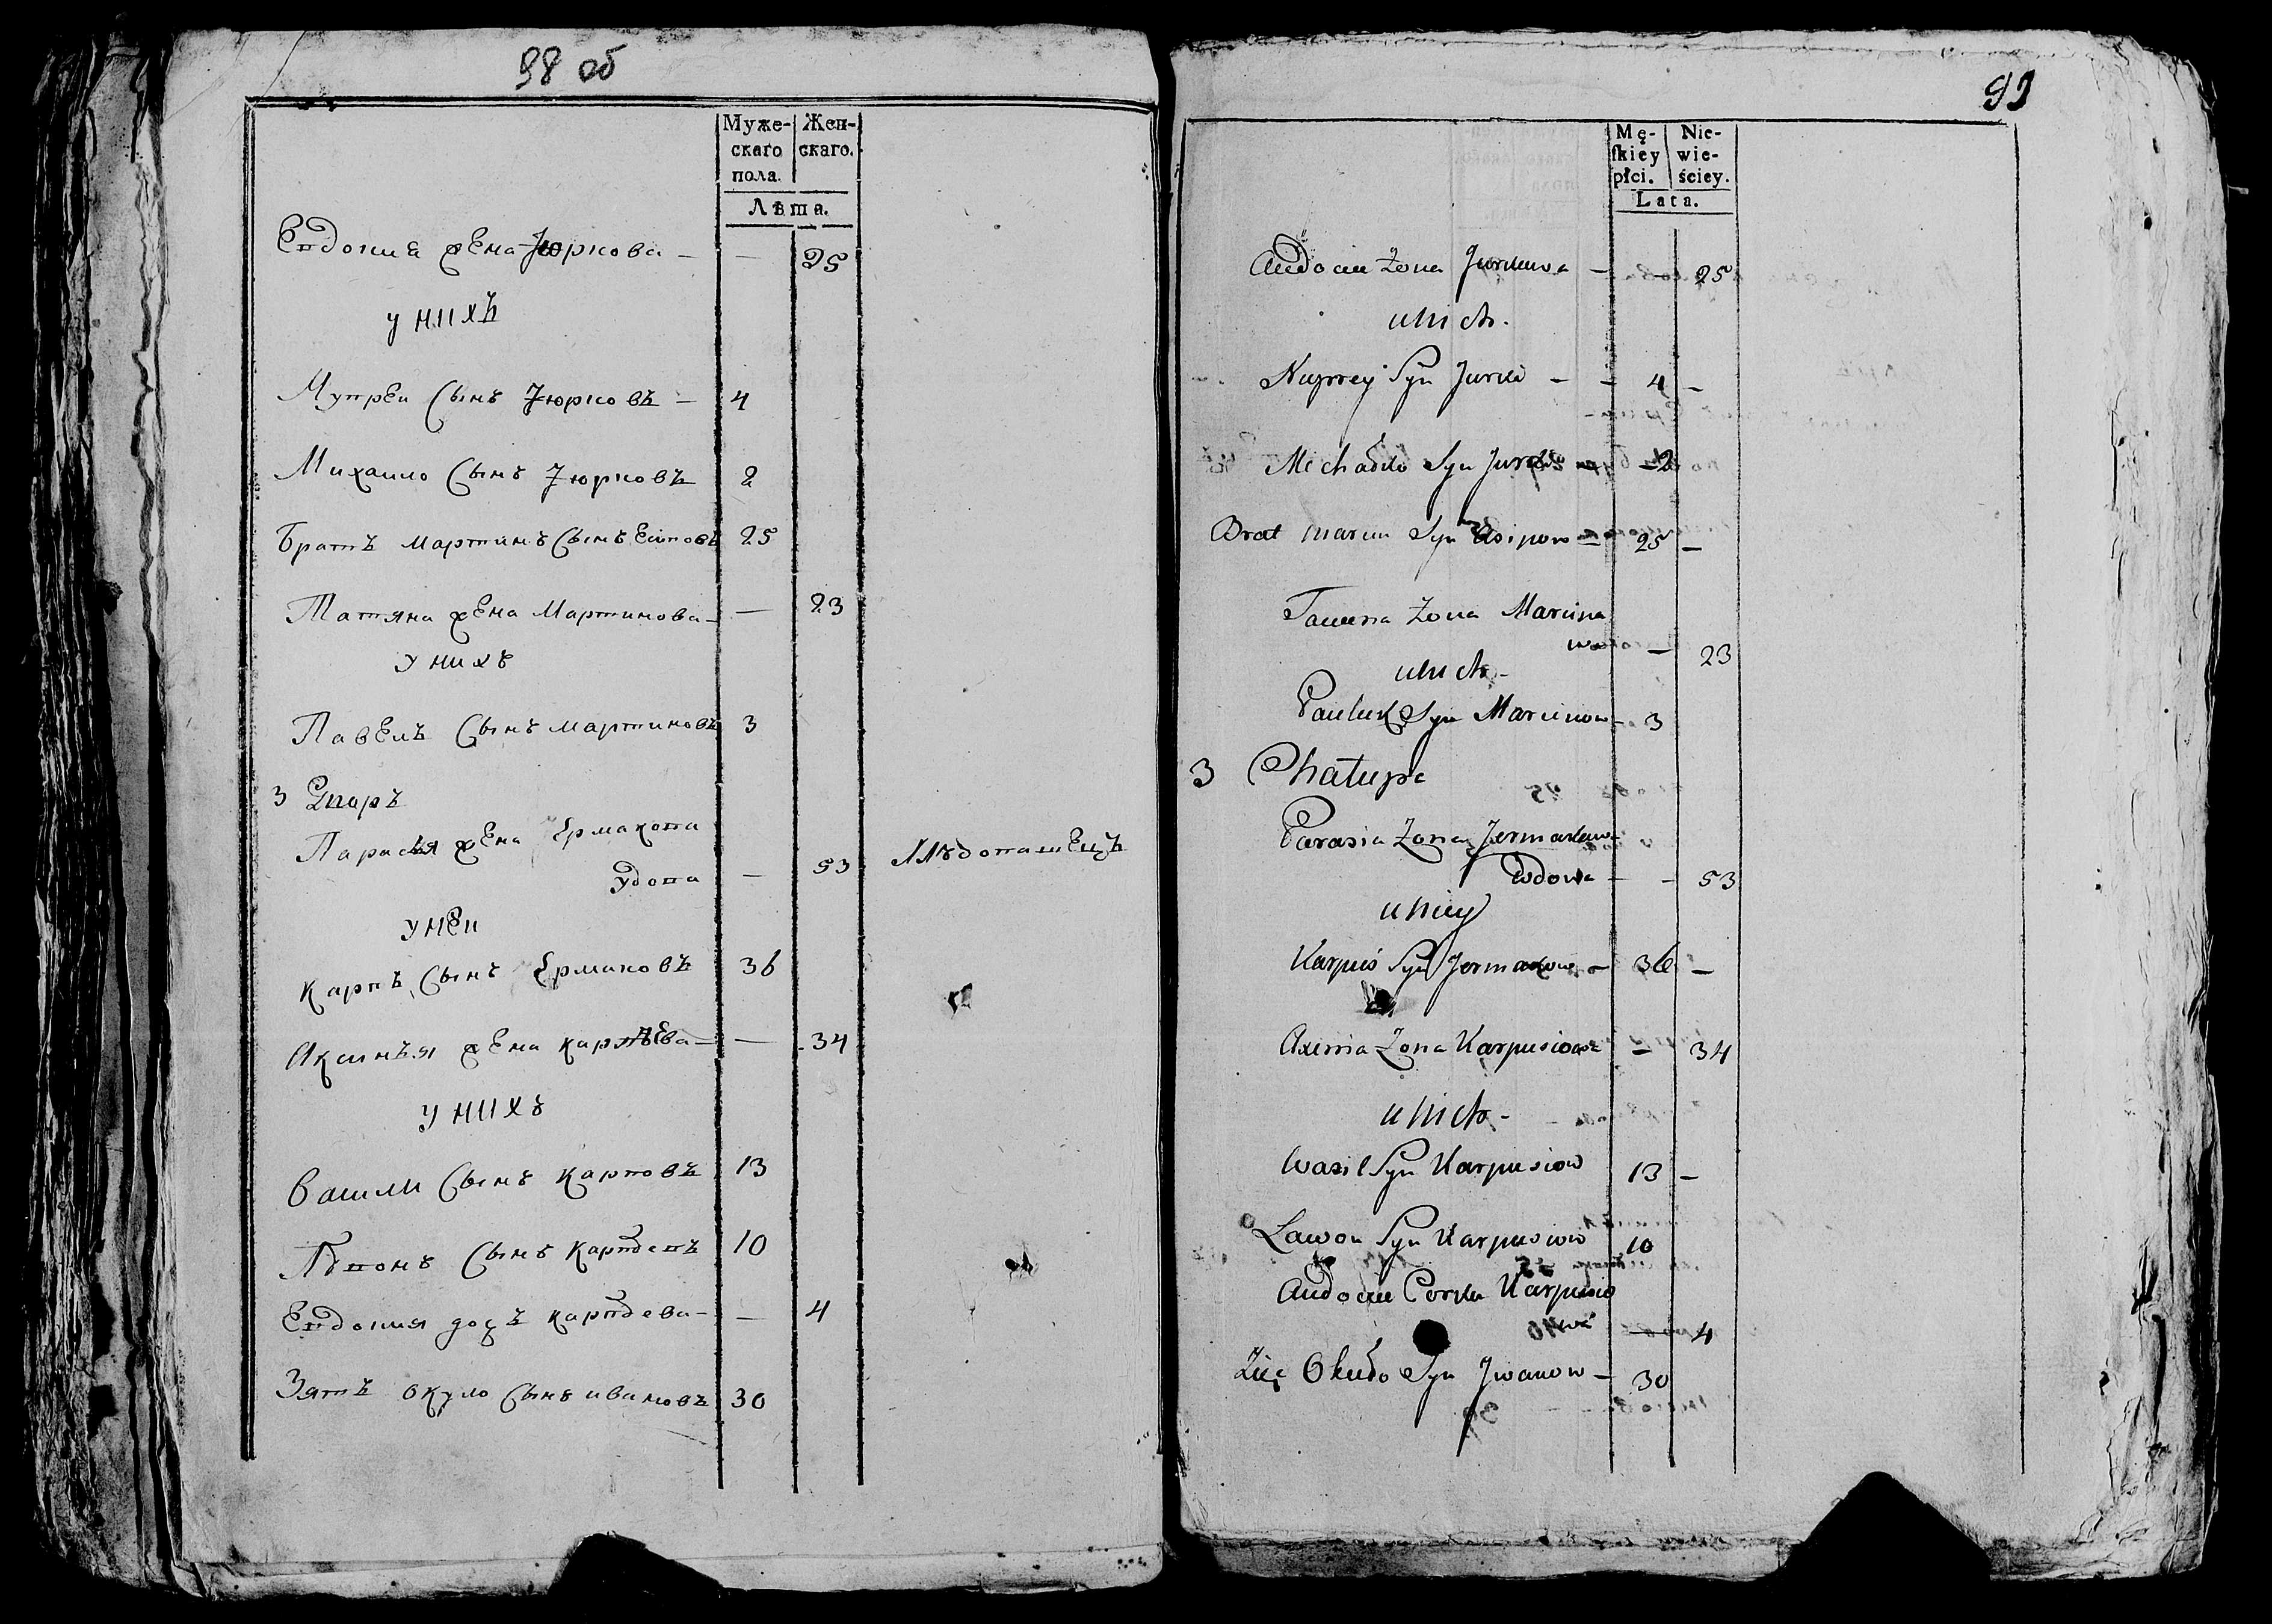 98 об
Муже- Жен-
скаго скаго.
пола.
Лѣта.
Евдокия жена Юркова — — 25
у нихъ
Нупреи сынъ Юрковъ — 4
Михаило сынъ Юрковъ 2
братъ мартинъ сынъ Есиповъ 25
Татяна жена Мартинова — — 23
у нихъ
Павелъ сынъ мартиновъ 3
3 Дворъ
Парасья жена Ермакова
удова — 53
у неи
карпъ сынъ Ермаковъ 36
Аксинья жена карпѣева — — 34
у нихъ
Васили сынъ карповъ 13
сынъ карпѣевъ 10
Евдокия доцъ карпѣева — — 4
Зять окуло сынъ ивановъ 30
99
Mę- Nie-
ſkiey wie-
płci. ściey.
Lata.
Audocia Zona Jurkowa — — 25
u nich.
Nuprey Syn Jurki — — 4 —
Michadło Syn Jurków — 2
Brat Marcin Syn Asipow — 25 —
Taciena Zona Marcina
wa — 23
u nich -
Pauluk Syn Marcinow — 3
3 Chałupa
Parasia Zona Jermakowa
Wdowa — — 53
u niey
Karpuś Syn Jermakow — 36 —
Axinia Zona Karpusiowa — 34
u nich -
Wasil Syn Karpusiow 13 —
Lawon Syn Karpusiow 10
Audocia Corka Karpusio
wa — 4
Zięć Okuło Syn Jwanow — 30